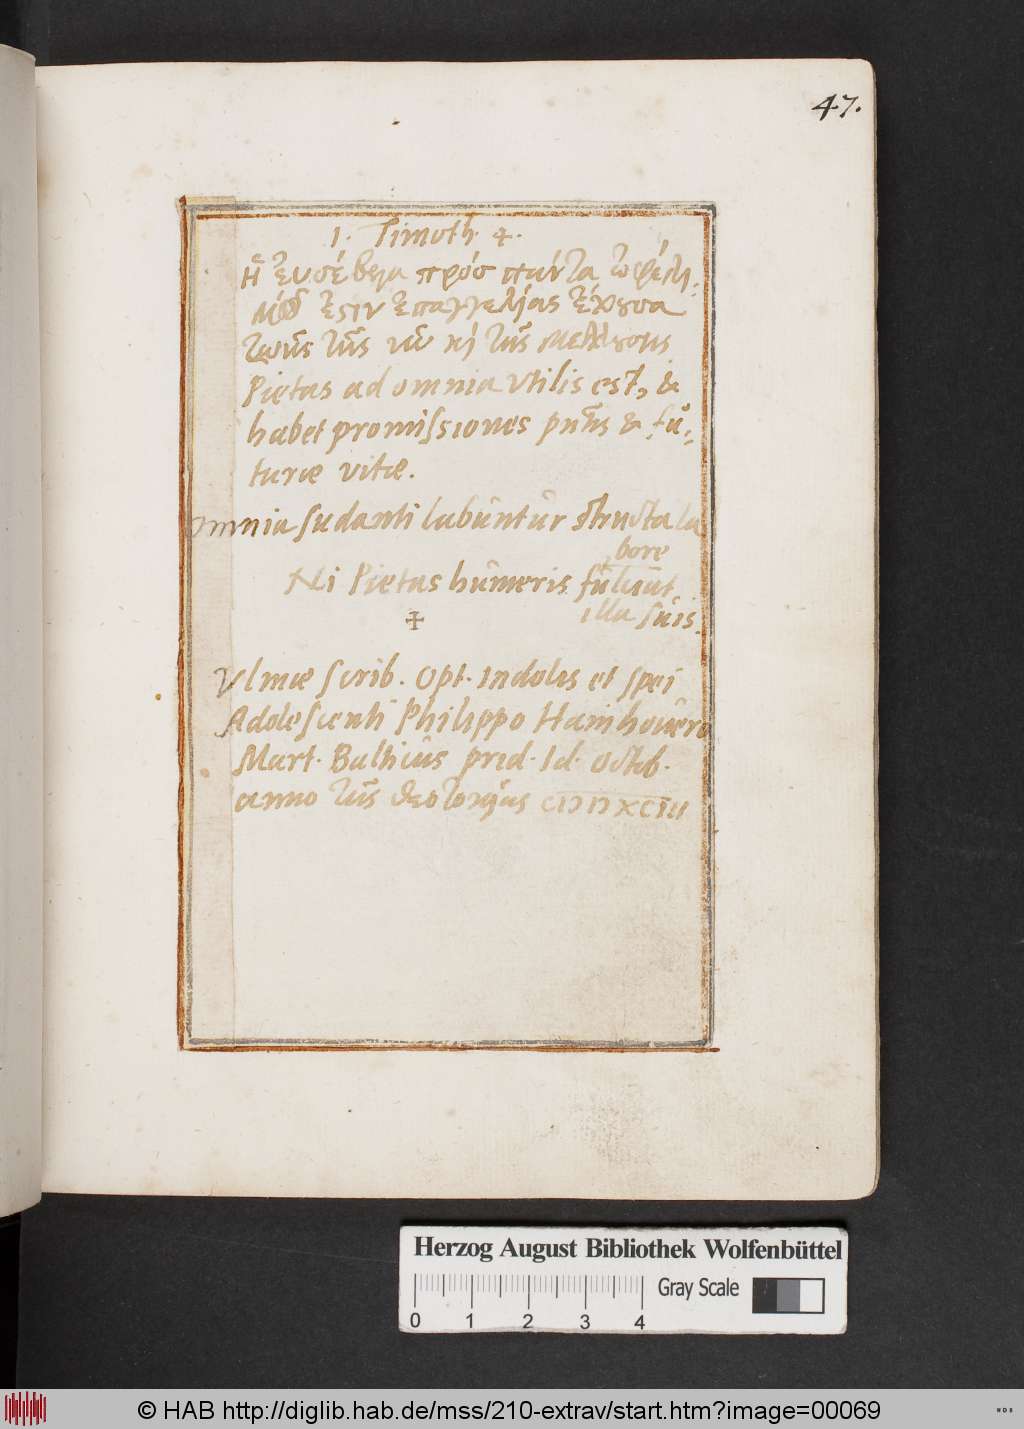 47.
1. Timoth. 4.
ἡ εὐσέβεια πρὸσ πάντα ὠφέλι-
μός ἐστιν ἐπαγγελίας ἔχουσα
ζωῆς τῆς νῦν κὶ τῆς μελλούσης
Pietas ad omnia vtilis est, &
habet promissiones pñtis & fu-
turæ vitæ.
Omnia sudanti labuntur structa la
bore
Ni Pietas humeris fulciat
illa suis.
Vlmæ scrib. Opt. Indolis et spei
Adolescenti Philippo Hainhouero
Mart. Balticus prid. Id. Octob.
anno τῆς θεογονίας
Herzog August Bibliothek Wolfenbüttel
Gray Scale
0 1 2 3 4
© HAB http://diglib.hab.de/mss/210-extrav/start.htm?image=00069
HAB